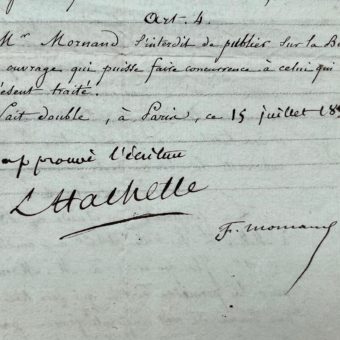 Art. 4.
Mr Mornand s'interdit de publier sur la B
ouvrage qui puisse faire concurrence à celui qui
ésent traité.
Fait double, à Paris, ce 15 juillet 18
approuvé l'écriture
L Hachette
F. Mornand